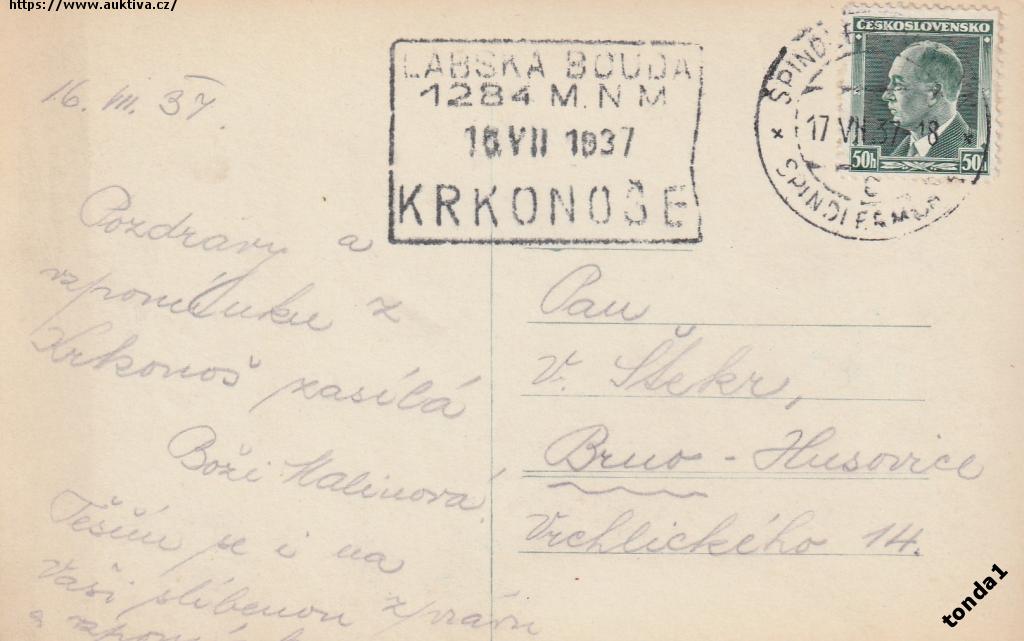 https://www.auktiva.cz/
LABSKÁ BOUDA
1284 M. N M
16 VII 1937
KRKONOŠE
ČESKOSLOVENSKO
50h 50h
17 VII 37-18
16. VII. 37.
Pozdravy a
vzpomínku z
Krkonoš zasílá
Boži Malinová.
Těším se i na
Vaši slíbenou zprávu
a
Pan
V. Štekr,
Brno - Husovice
Vrchlického 14.
tonda1